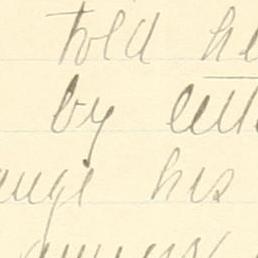 told he
by lette
ange his